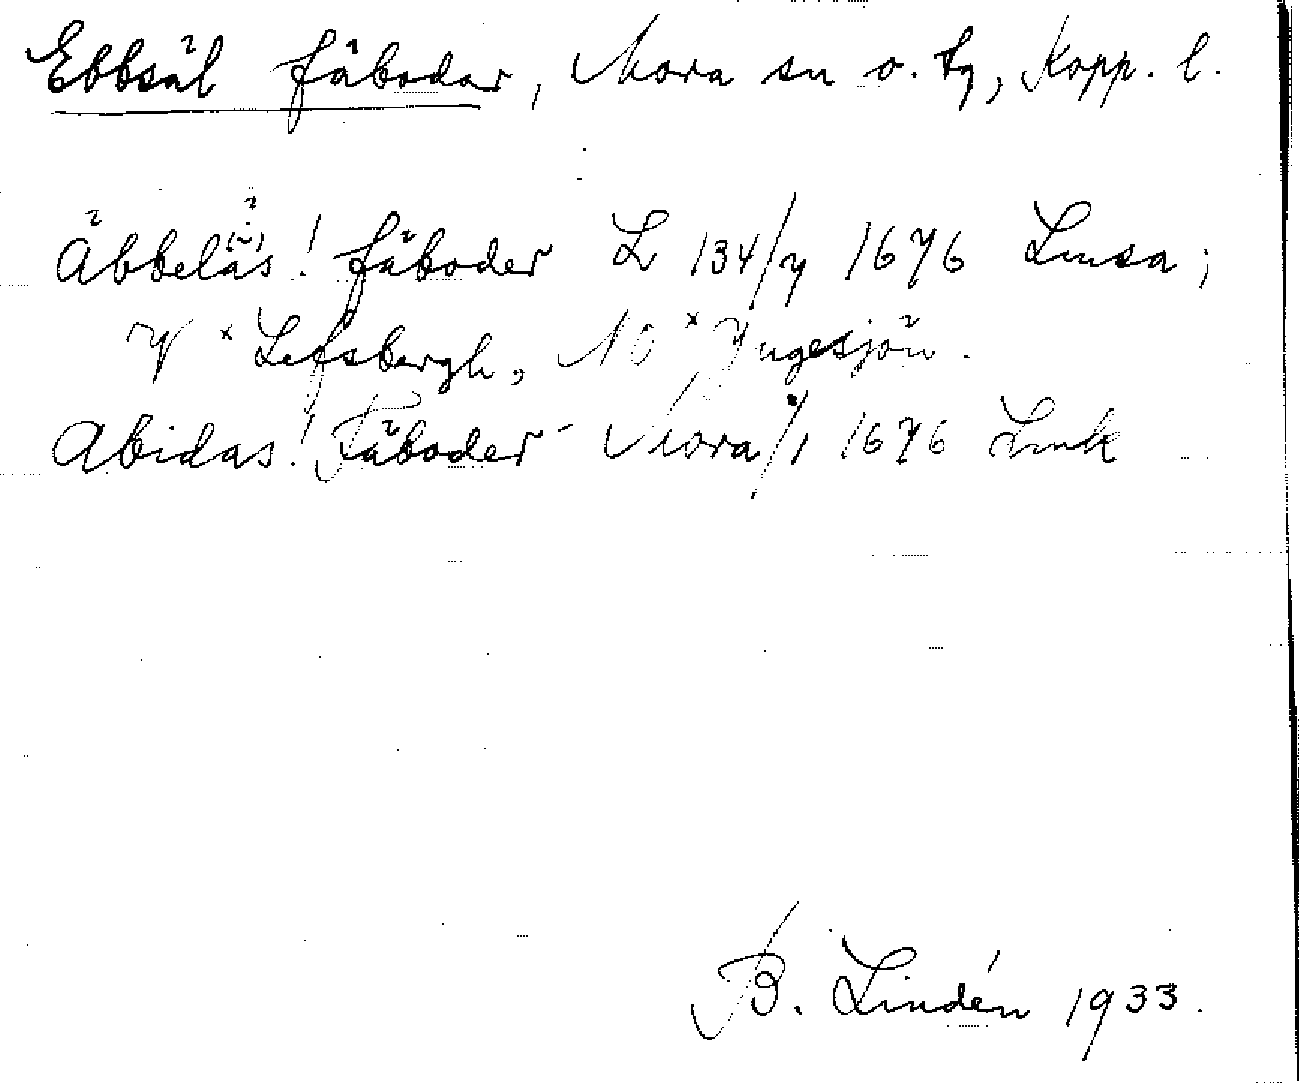 Ebbsäl fäbodar, Mora sn o. tg, Kopp. l.
Äbbelä(-)s! fäboder L 134/7 1676 Lmsa;
V x Lefsbergh, NO x Ingesjön.
Abidas! Fäboder Mora/1 1676 Lmk
B. Lindén 1933.